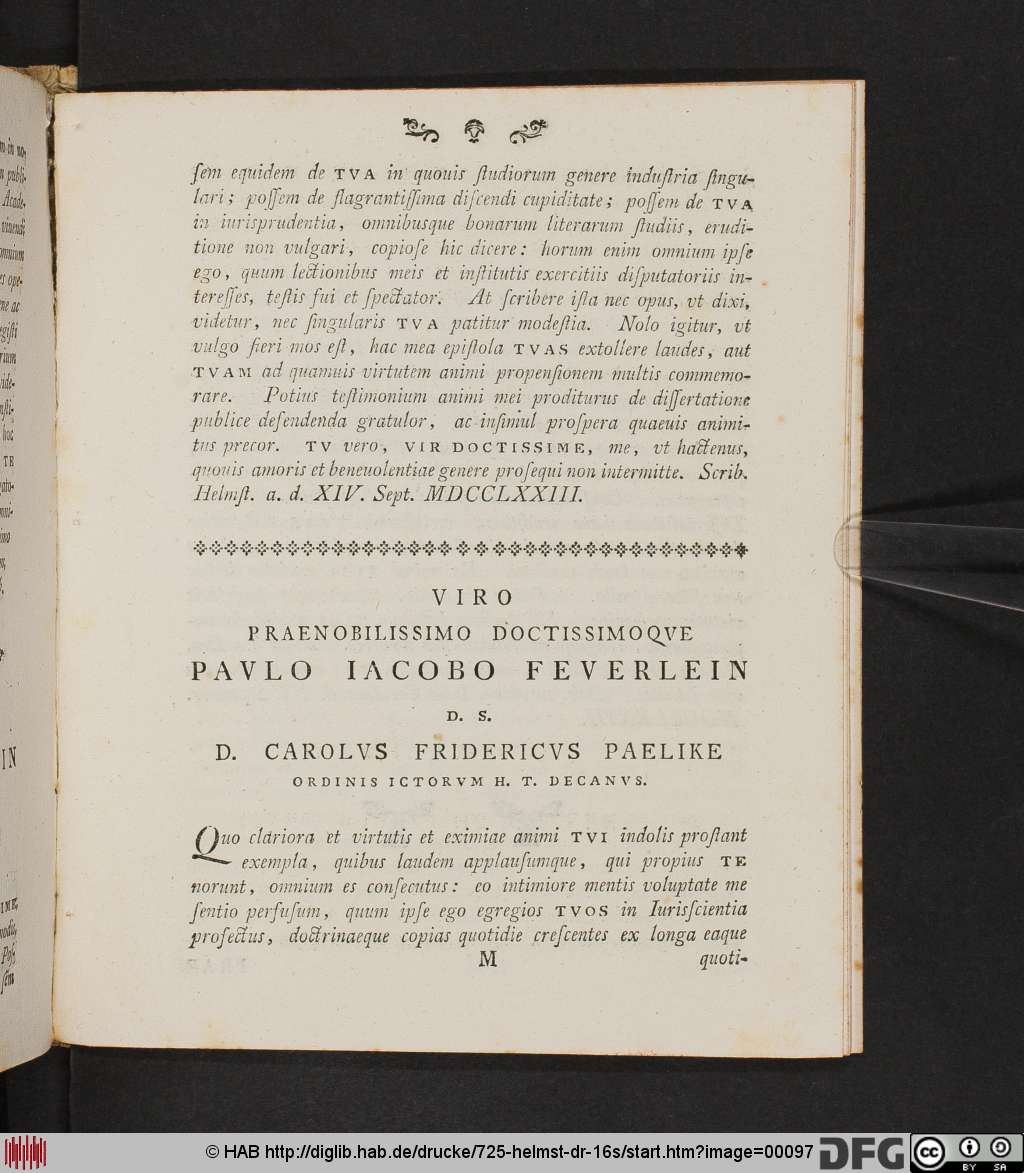 ſem equidem de TVA in quouis ſtudiorum genere induſtria ſingu-
lari; poſſem de flagrantiſſima diſcendi cupiditate; poſſem de TVA
in iurisprudentia, omnibusque bonarum literarum ſtudiis, erudi-
tione non vulgari, copioſe hic dicere: horum enim omnium ipſe
ego, quum lectionibus meis et inſtitutis exercitiis diſputatoriis in-
tereſſes, teſtis fui et ſpectator. At ſcribere iſta nec opus, vt dixi,
videtur, nec ſingularis TVA patitur modeſtia. Nolo igitur, vt
vulgo fieri mos eſt, hac mea epiſtola TVAS extollere laudes, aut
TVAM ad quamuis virtutem animi propenſionem multis commemo-
rare. Potius teſtimonium animi mei proditurus de diſſertatione
publice defendenda gratulor, ac inſimul proſpera quaeuis animi-
tus precor. TV vero, VIR DOCTISSIME, me, vt hactenus,
quouis amoris et beneuolentiae genere proſequi non intermitte. Scrib.
Helmſt. a. d. XIV. Sept. MDCCLXXIII.
VIRO
PRAENOBILISSIMO DOCTISSIMOQVE
PAVLO IACOBO FEVERLEIN
D. S.
D. CAROLVS FRIDERICVS PAELIKE
ORDINIS ICTORVM H. T. DECANVS.
Quo clariora et virtutis et eximiae animi TVI indolis proſtant
exempla, quibus laudem applauſumque, qui propius TE
norunt, omnium es conſecutus: eo intimiore mentis voluptate me
ſentio perfuſum, quum ipſe ego egregios TVOS in Iurisſcientia
profectus, doctrinaeque copias quotidie creſcentes ex longa eaque
M quoti-
© HAB http://diglib.hab.de/drucke/725-helmst-dr-16s/start.htm?image=00097
DFG
cc
BY SA